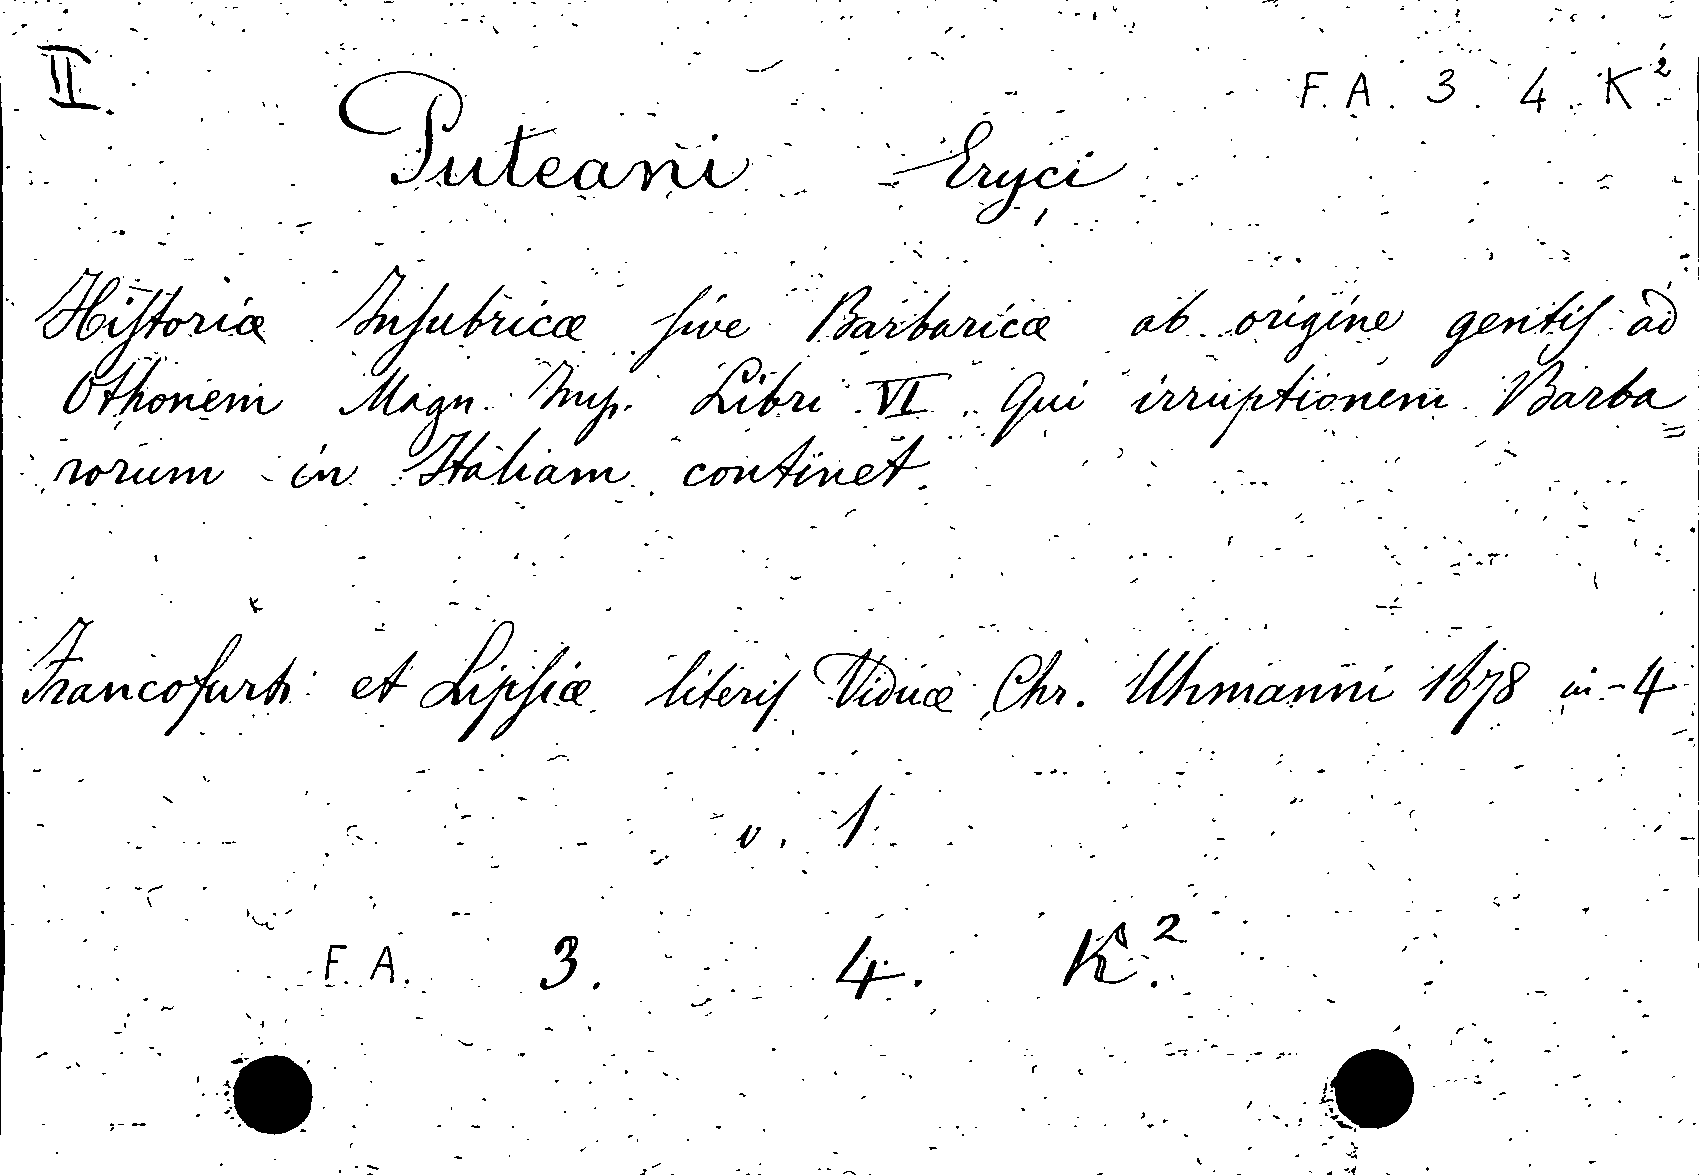 II. F. A. 3. 4. K²
Puteani Eryci
Hiſtoriæ Inſubricæ ſive Barbaricæ ab origine gentiſ ad
Othonem Magn. Imp. Libri VI. Qui irruptionem Barba=
rorum in Italiam continet.
Francofurti et Lipſiæ literiſ Viduæ Chr. Uhmanni 1678 in-4
v. 1.
F. A. 3. 4. K.²